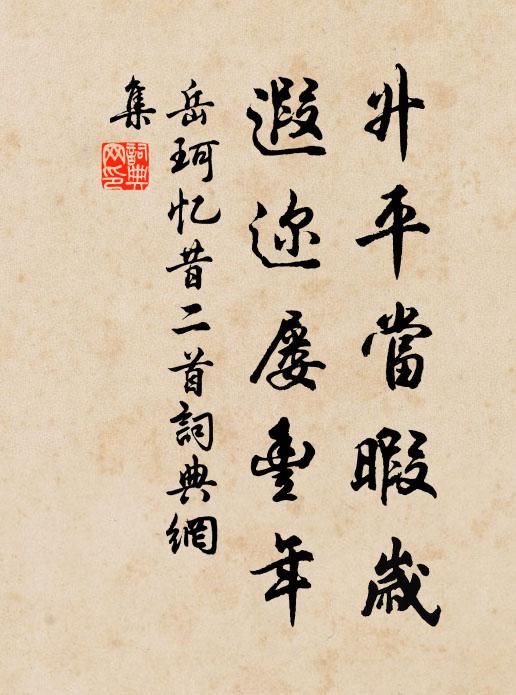 升平當暇歲
遐迩屡豊年
岳珂忆昔二首詞典網
集
詞典
网印